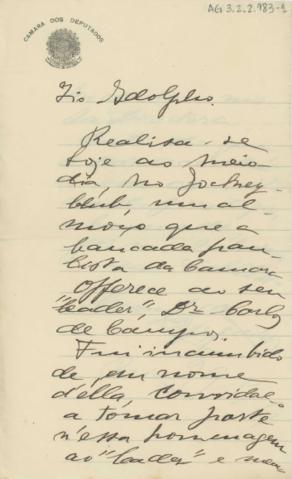 AG 3.2.2.983-1
CAMARA DOS DEPUTADOS
Tio Adolpho.
Realisa-se
hoje ao meio
dia, no Jockey-
Club, um al-
moço que a
bancada pau-
lista da Camara
offerece ao seu
"leader", Dr. Carlos
de Campos.
Fui incumbido
de, em nome
d'ella, convidal-o
a tomar parte
n'essa homenagem
ao "leader" e